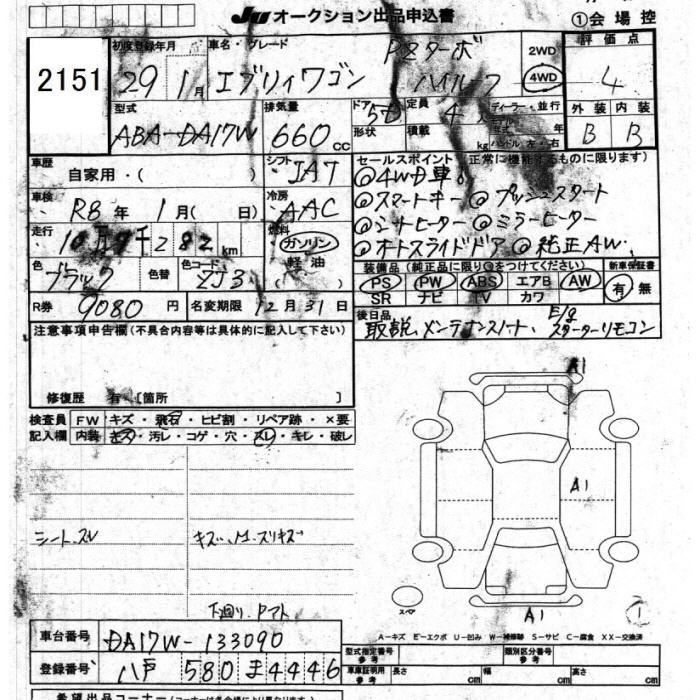 JU オークション出品申込書
①会場控
2151
初度登録年月
29 1月
車名・グレード
エブリィワゴン
PZターボ
ハイルーフ
2WD
4WD
評価点
4
型式
ABA-DA17W
排気量
660 CC
ドア 5D
形状
定員 4 人
積載 kg
ディーラー・並行
モデル 年
ハンドル 左・右
外装 内装
B B
車歴
自家用・( )
シフト
IAT
セールスポイント (正常に機能するものに限ります)
◎4WD車
◎スマートキー ◎プッシュスタート
◎シートヒーター ◎ミラーヒーター
◎オートスライドドア ◎純正AW.
車検
R8年 1月( 日)
冷房
AAC
走行
10万7千282km
燃料
ガソリン
軽油
色
ブラック
色替
色コード
ZJ3
装備品(純正品に限り○をつけてください)
新車保証書
PS PW ABS エアB AW
SR ナビ TV カワ
有 無
R券 9080 円
名変期限 12月31日
後日品
取説,メンテナンスノート, E/gスターターリモコン
注意事項申告欄(不具合内容等は具体的に記入して下さい)
修復歴 有 [箇所 ]
検査員
記入欄
FW キズ・飛石・ヒビ割・リペア跡・×要
内装 キズ・汚レ・コゲ・穴・スレ・キレ・破レ
A1
A1
シートスレ
キズ、M・スリキズ
下廻り.Pマト
スペア
A1
1
A-キズ E-エクボ U-凹み W-補修跡 S-サビ C-腐食 XX-交換済
車台番号 DA17W-133090
型式指定番号
参考
類別区分番号
参考
登録番号 八戸 580 ま 4446
車庫証明用
参考
長さ cm
幅 cm
高さ cm
希望出品コーナー